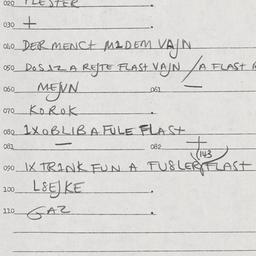 020 FLESTER .
030 + .
040 DER MENCH M2DEM VAJN
050 DOS 12 A REJTE FLAST VAJN / A FLAST
060 MEJNN 061 —
070 KOROK .
080 1X OBLIB A FULE FLAST
081 — 082 +
143
090 1X TR1NK FUN A FU8LER FLAST
100 L8EJKE .
110 GAZ .